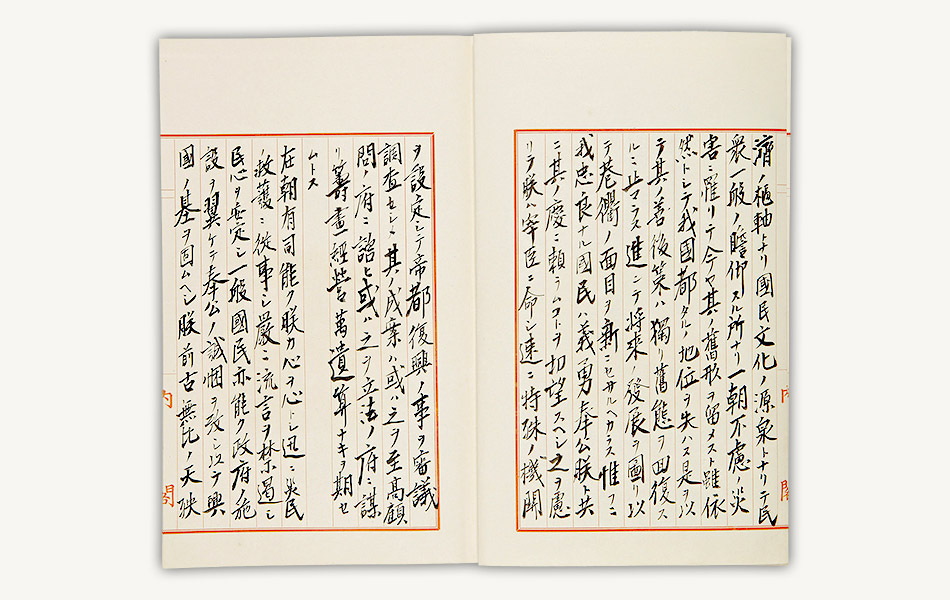 濟ノ樞軸トナリ國民文化ノ源泉トナリテ民
衆一般ノ瞻仰スル所ナリ一朝不慮ノ災
害ニ罹リテ今ヤ其ノ舊形ヲ留メスト雖依
然トシテ我國都タル地位ヲ失ハス是ヲ以
テ其ノ善後策ハ獨リ舊態ヲ回復ス
ルニ止マラス進ンテ將來ノ發展ヲ圖リ以
テ巷衢ノ面目ヲ新ニセサルヘカラス惟フニ
我忠良ナル國民ハ義勇奉公朕ト共
ニ其ノ慶ニ頼ラムコトヲ切望スヘシ之ヲ慮
リテ朕ハ宰臣ニ命シ速ニ特殊ノ機關
ヲ設定シテ帝都復興ノ事ヲ審議
調査セシメ其ノ成案ハ或ハ之ヲ至高顧
問ノ府ニ諮ヒ或ハ之ヲ立法ノ府ニ謀
リ籌畫經營萬遺算ナキヲ期セ
ムトス
在朝有司能ク朕カ心ヲ心トシ迅ニ災民
ノ救護ニ從事シ嚴ニ流言ヲ禁遏シ
民心ヲ安定シ一般國民亦能ク政府ノ施
設ヲ翼ケテ奉公ノ誠悃ヲ致シ以テ興
國ノ基ヲ固ムヘシ朕前古無比ノ天殃
内閣